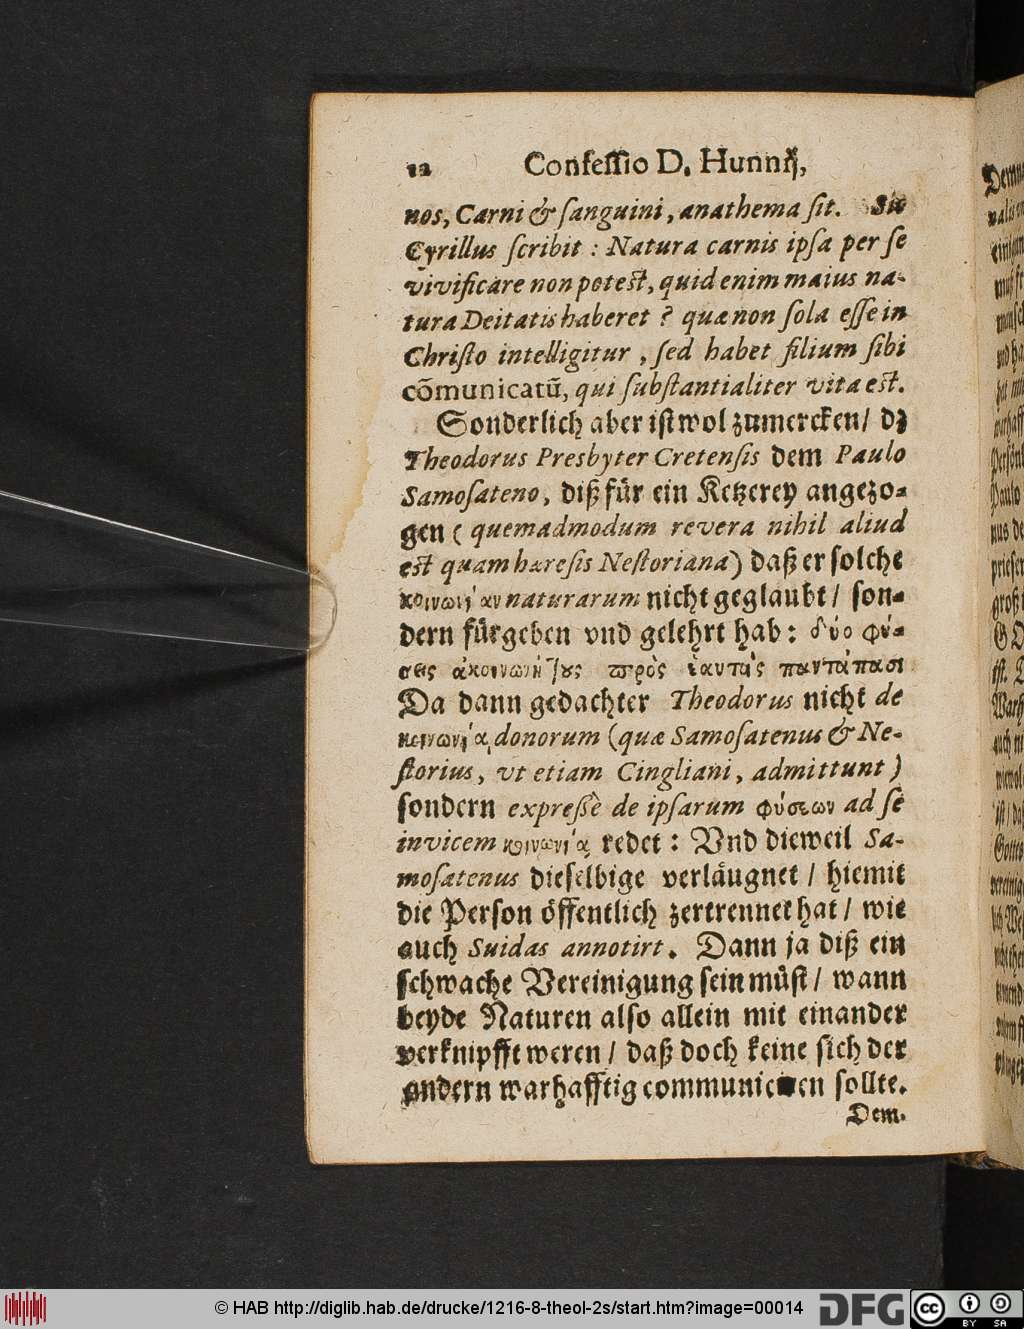 12 Confessio D. Hunnij,
nos, Carni & sanguini, anathema sit. Sic
Cyrillus scribit : Natura carnis ipsa per se
vivificare non potest, quid enim maius na-
tura Deitatis haberet ? quæ non sola esse in
Christo intelligitur, sed habet filium sibi
cõmunicatũ, qui substantialiter vita est.
Sonderlich aber ist wol zumercken/ dz
Theodorus Presbyter Cretensis dem Paulo
Samosateno, diß für ein Ketzerey angezo-
gen ( quemadmodum revera nihil aliud
est quam hæresis Nestoriana) daß er solche
κοινωνίαν naturarum nicht geglaubt/ son-
dern fürgeben vnd gelehrt hab: δύο φύ-
σεις ἀκοινωνήτους πρὸς ἑαυτὰς παντάπασι
Da dann gedachter Theodorus nicht de
κοινωνίᾳ donorum (quæ Samosatenus & Ne-
storius, vt etiam Cingliani, admittunt)
sondern expressè de ipsarum φύσεων ad se
invicem κοινωνίᾳ redet: Vnd dieweil Sa-
mosatenus dieselbige verläugnet/ hiemit
die Person öffentlich zertrennet hat/ wie
auch Suidas annotirt. Dann ja diß ein
schwache Vereinigung sein müst/ wann
beyde Naturen also allein mit einander
verknipfft weren/ daß doch keine sich der
andern warhafftig communiciren sollte.
Dem-
© HAB http://diglib.hab.de/drucke/1216-8-theol-2s/start.htm?image=00014 DFG cc BY SA